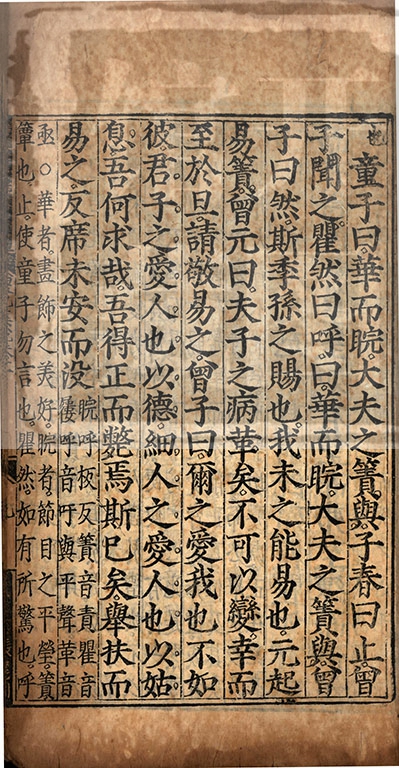 也 童子曰。華而睆。大夫之簀與。子春曰。止。曾
子聞之。瞿然曰。呼。曰。華而睆。大夫之簀與。曾
子曰。然。斯季孫之賜也。我未之能易也。元起
易簀。曾元曰。夫子之病革矣。不可以變。幸而
至於旦。請敬易之。曾子曰。爾之愛我也不如
彼。君子之愛人也以德。細人之愛人也以姑
息。吾何求哉。吾得正而斃焉。斯已矣。舉扶而
易之。反席未安而没
睆呼板反簀音責瞿音
懼呼音吁與平聲革音
亟○華者。畫飾之美好。睆者。節目之平瑩。簀
簟也。止。使童子勿言也。瞿然。如有所驚也。呼